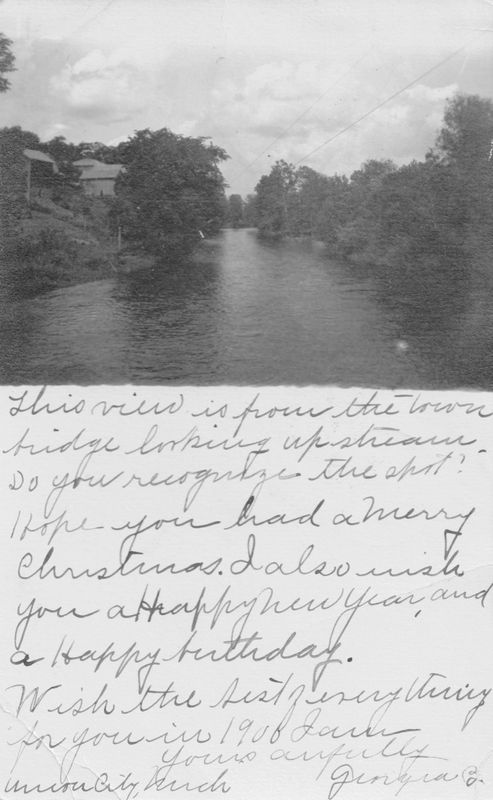 This view is from the town
bridge looking up stream.
Do you recognize the spot?
Hope you had a Merry
Christmas. I also wish
you a Happy New Year, and
a Happy birthday.
Wish the best of everything
for you in I am
Yours
Union City, Mich Georgia B.